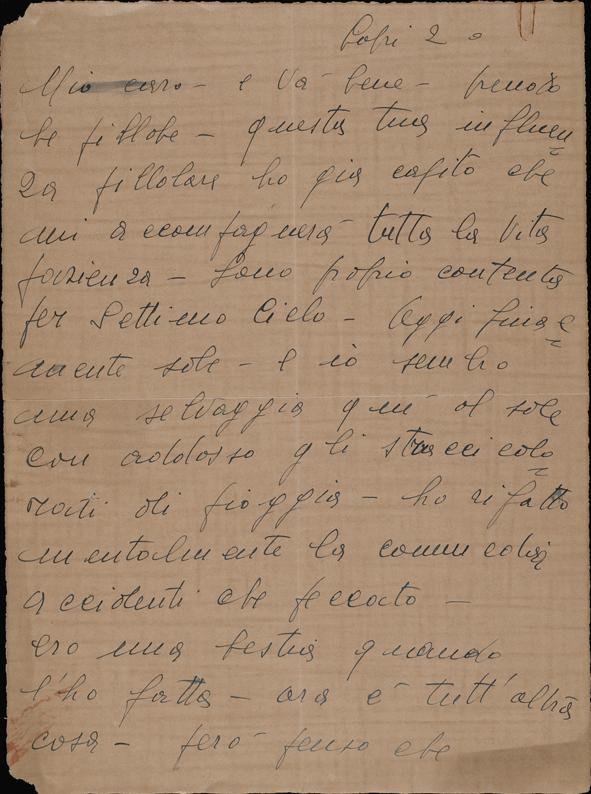 Capri 2
Mio caro - e va bene - prendo
be pillole - questa tua influen
za pillolare ho già capito che
mi accompagnerà tutta la vita
pazienza - Sono proprio contenta
per Settimo Cielo - Oggi final
mente sole - e io sembro
una selvaggia qui al sole
con addosso gli stracci colo
rati di pioggia - ho rifatto
mentalmente la commedia
accidenti che peccato -
ero una bestia quando
l'ho fatta - ora è tutt'altra
cosa - però penso che